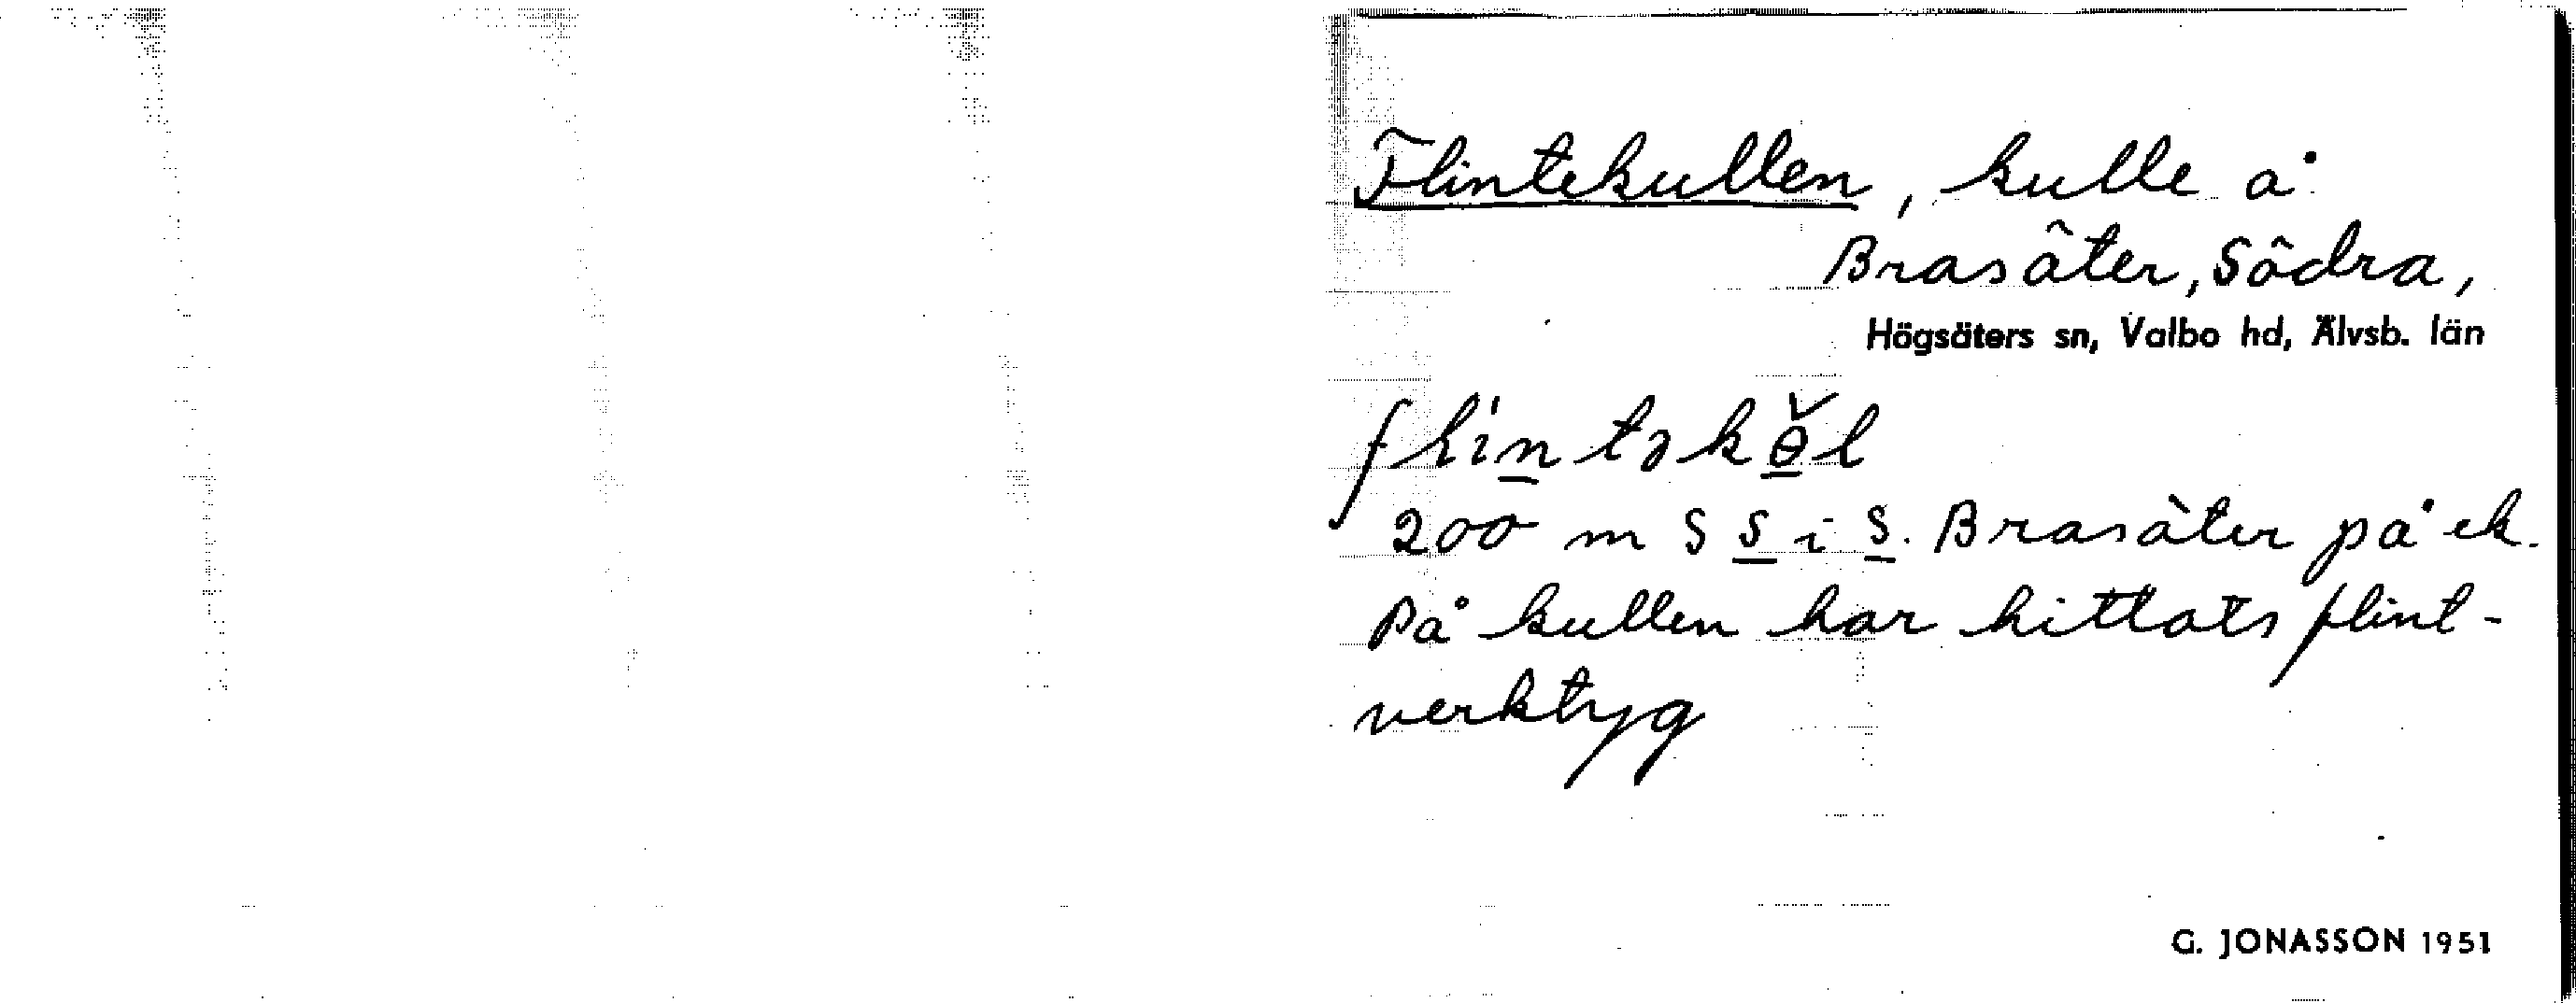 Flintekullen, kulle å
Brasäter, Södra,
Högsäters sn, Valbo hd, Älvsb. län
flin̲təkθ̲̌l
200 m S S̲ i S̲. Brasäter på ek.
På kullen har hittats flint-
verktyg
G. JONASSON 1951